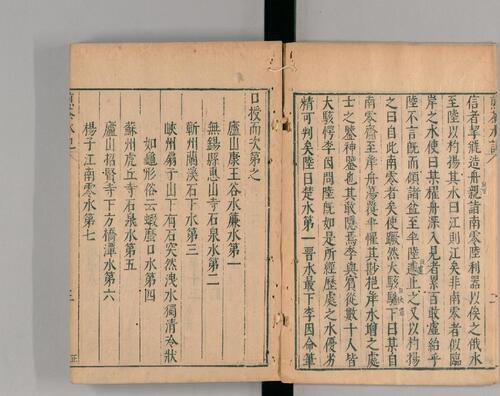 信者挈瓶操舟親詣南零陸利器以俟之俄水
至陸以杓揚其水曰江則江矣非南零者似臨
岸之水使曰某櫂舟深入見者累百敢虛紿乎
陸不言既而傾諸盆至半陸遽止之又以杓揚
之曰自此南零者矣使蹶然大駭馳下曰某自
南零齎至岸舟蕩覆半懼其尠挹岸水增之處
士之鑒神鑒也其敢隱焉李與賓從數十人皆
大駭愕李因問陸既如是所經歷處之水優劣
精可判矣陸曰楚水第一晋水最下李因命筆
口授而次第之
廬山康王谷水簾水第一
無錫縣惠山寺石泉水第二
蘄州蘭溪石下水第三
峽州扇子山下有石突然洩水獨清冷狀
如龜形俗云蝦蟇口水第四
蘇州虎丘寺石泉水第五
廬山招賢寺下方橋潭水第六
楊子江南零水第七